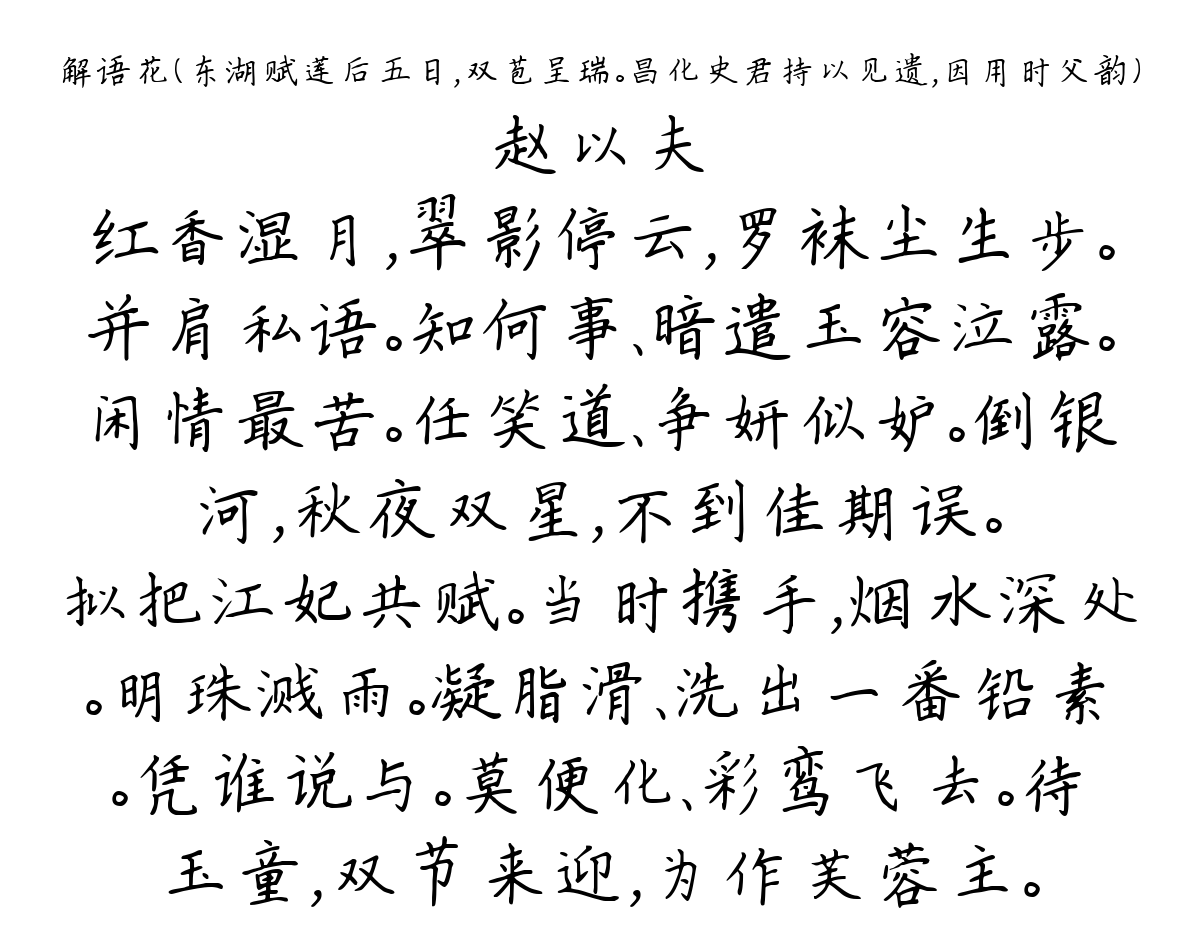 解语花(东湖赋莲后五日,双苞呈瑞。昌化史君持以见遗,因用时父韵)
赵以夫
红香湿月,翠影停云,罗袜尘生步。
并肩私语。知何事、暗遣玉容泣露。
闲情最苦。任笑道、争妍似妒。倒银
河,秋夜双星,不到佳期误。
拟把江妃共赋。当时携手,烟水深处
。明珠溅雨。凝脂滑、洗出一番铅素
。凭谁说与。莫便化、彩鸾飞去。待
玉童,双节来迎,为作芙蓉主。